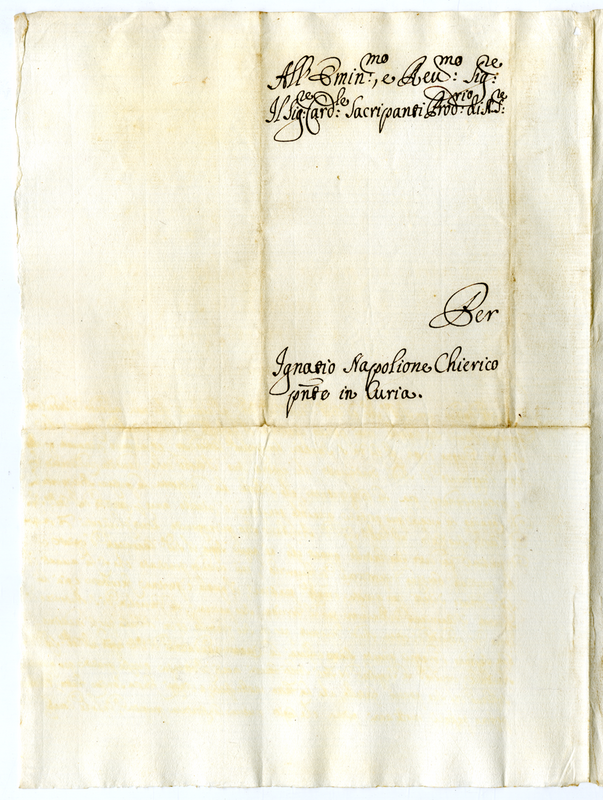 All' Emin.mo, e Reu.mo: Sig.re:
Il Sig.re: Card.le: Sacripanti Prod.rio: di N. S.re:
Per
Ignatio Napolione Chierico
pn̄te in Curia.